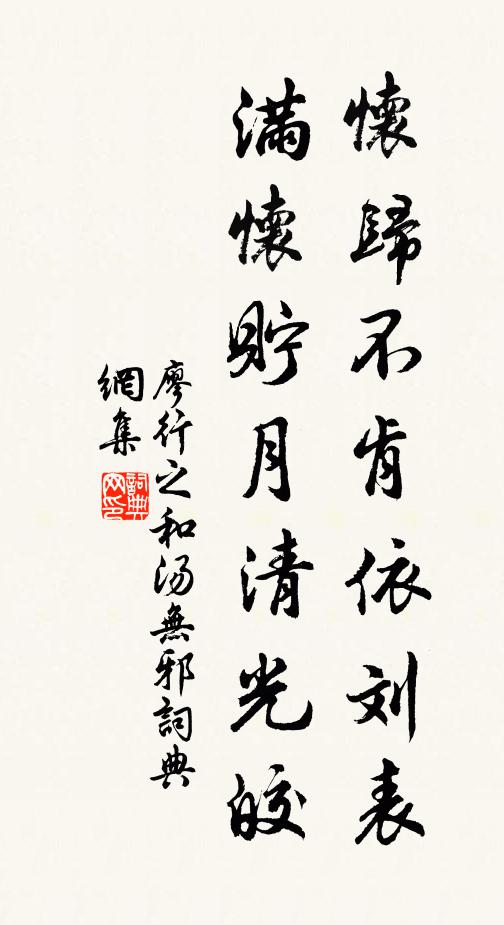 懷歸不肯依刘表
滿懷貯月清光皎
廖行之和湯無邪詞典
網集
詞典网印